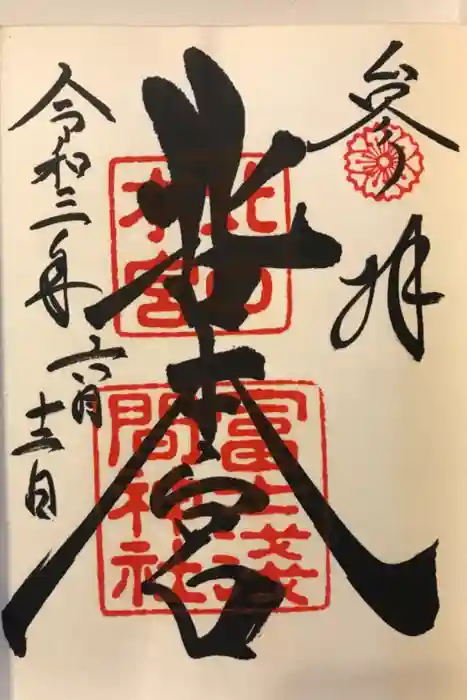 参拝
北口本宮
北口
本宮
冨士淺
間神社
令和三年六月十三日